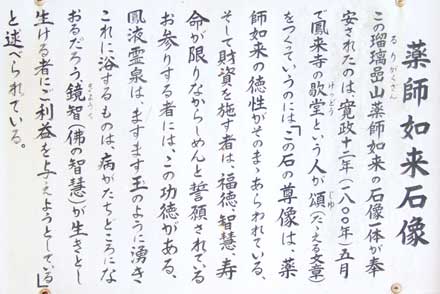 薬師如来石像
この瑠璃嵓山薬師如来の石像一体が奉
るりがくさん
安されたのは、寛政十二年(一八〇〇年)五月
で鳳来寺の歌堂という人が頌(たたえる文章)
けつどう
じゆ
をつくっていうのには、「この石の尊像は、薬
師如来の徳性がそのまゝあらわれている、
そして財資を施す者は、福徳、智慧、寿
命が限りなからしめんと誓願されている
お参りする者には、この功徳がある、
鳳液霊泉は、ますます玉のように湧き、
これに浴するものは、病がたちどころにな
おるだろう、鏡智(佛の智慧)が生きとし
きようち
生ける者にご利益を与えようとしている」
と述べられている。